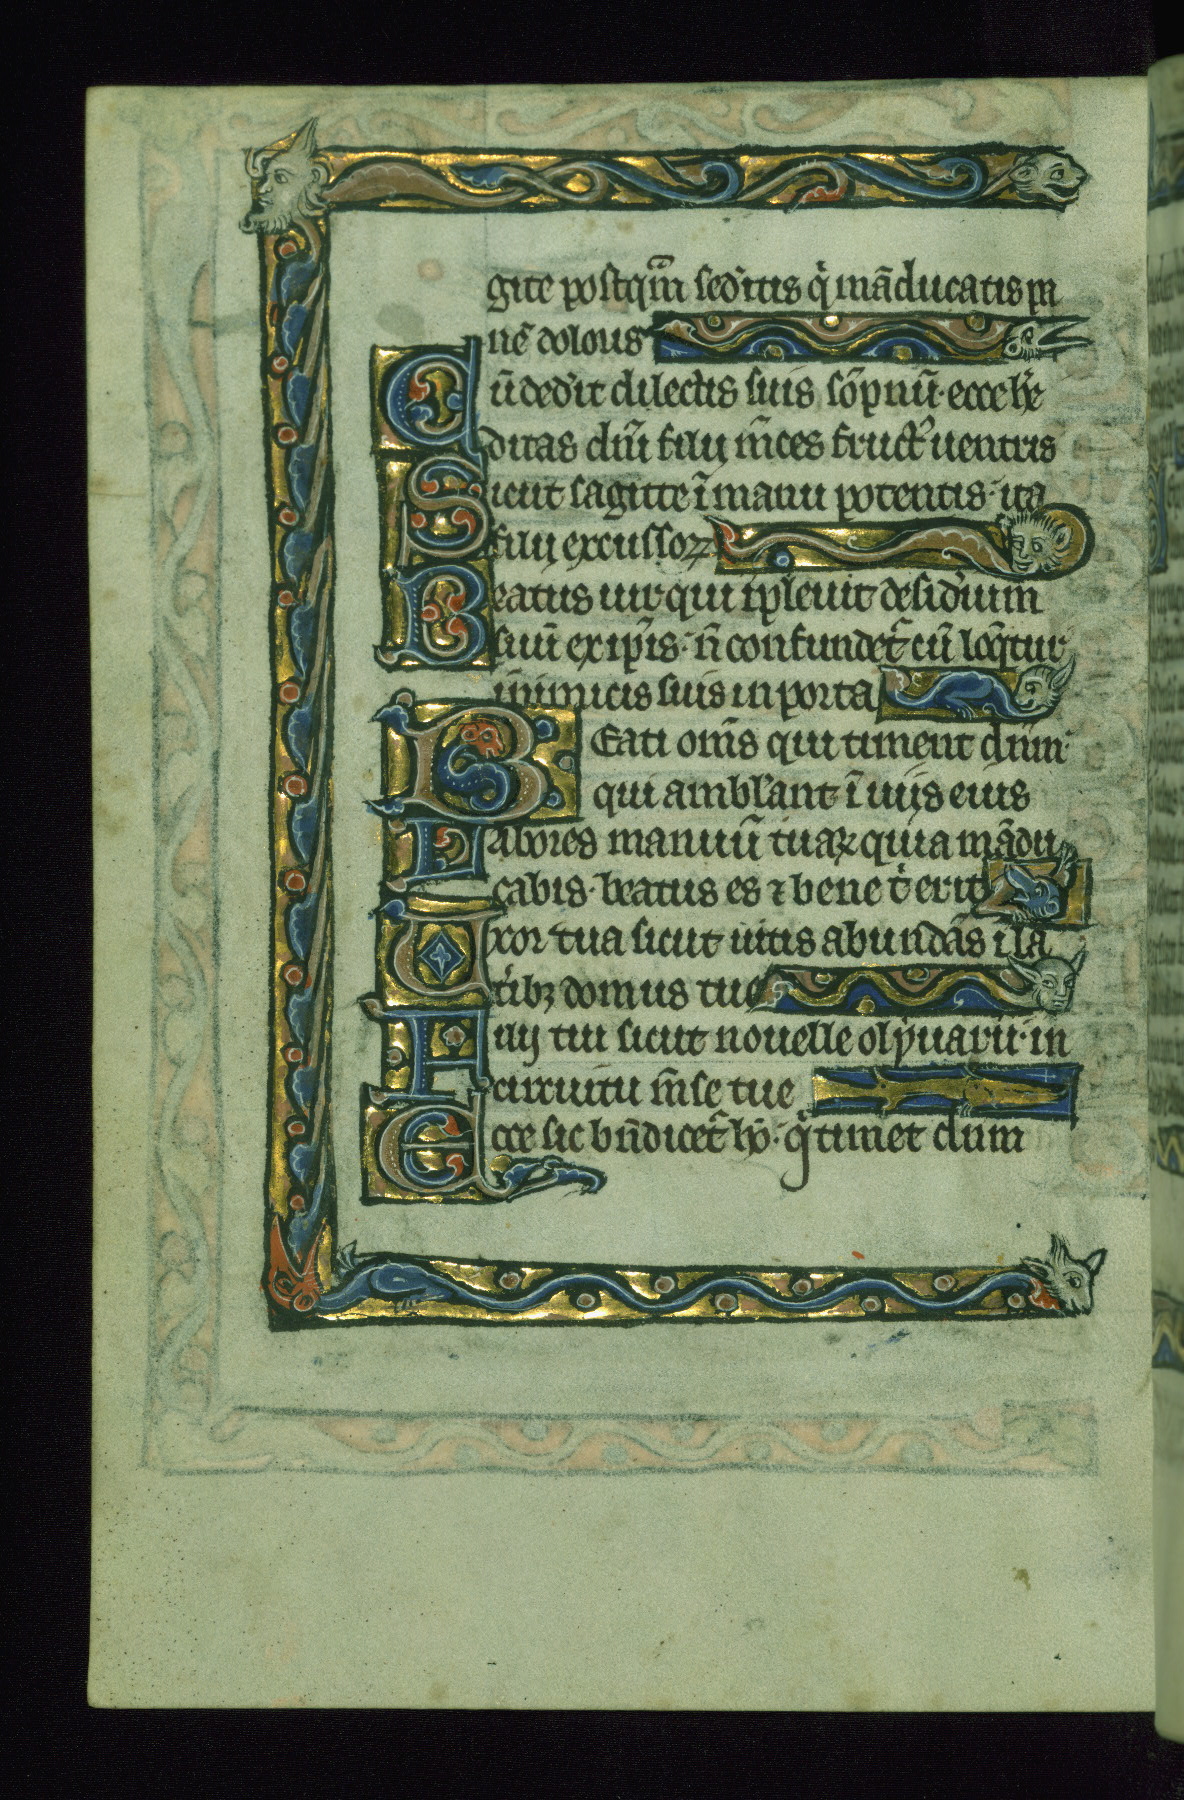 gite postq̃m sed'itis q' mãducatis pa
nẽ doloris
Cũ ded'it dilectis suis sõpnũ· ecce he'
ditas dñi filij m̃ces fruct' uentris
Sicut sagitte ĩ manu potentis· ita
filij excussoꝝ
Beatus uir qui ĩpleuit desid'ium
suũ ex ip̃is· ñ confundet᷑ cũ loq̃tur
inimicis suis in porta
BEati om̃s qui timent dnm·
qui ambl'ant ĩ uijs eius
Labores manuũ tuaꝝ quia mãdu
cabis· beatus es ⁊ bene t' erit
Uxor tua sicut uitis abundãs i la
t'ibꝫ domus tue
Filij tui sicut nouelle olyuarū· in
circuitu m̃se tue
Ecce sic bñdicet᷑ hõ· q' timet dnm